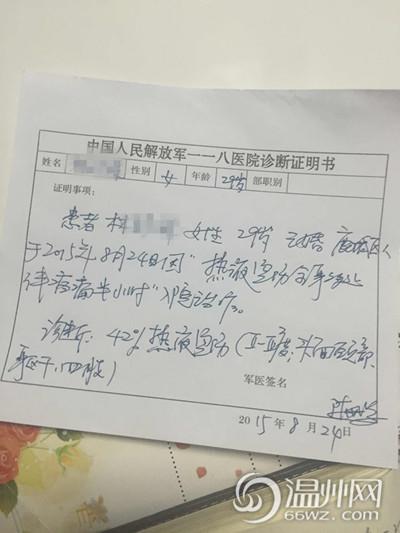 中国人民解放军一一八医院诊断证明书
姓名 性别 女 年龄 29岁 部职别
证明事项:
患者 林 女性 29岁 已婚 鹿城区人
于2015年8月24日因"热液烫伤全身多处
伴疼痛半小时"入院治疗。
诊断: 42%热液烫伤(II-III度,头面颈部、
躯干、四肢)
军医签名
2015年8月24日
温州网
66WZ.com